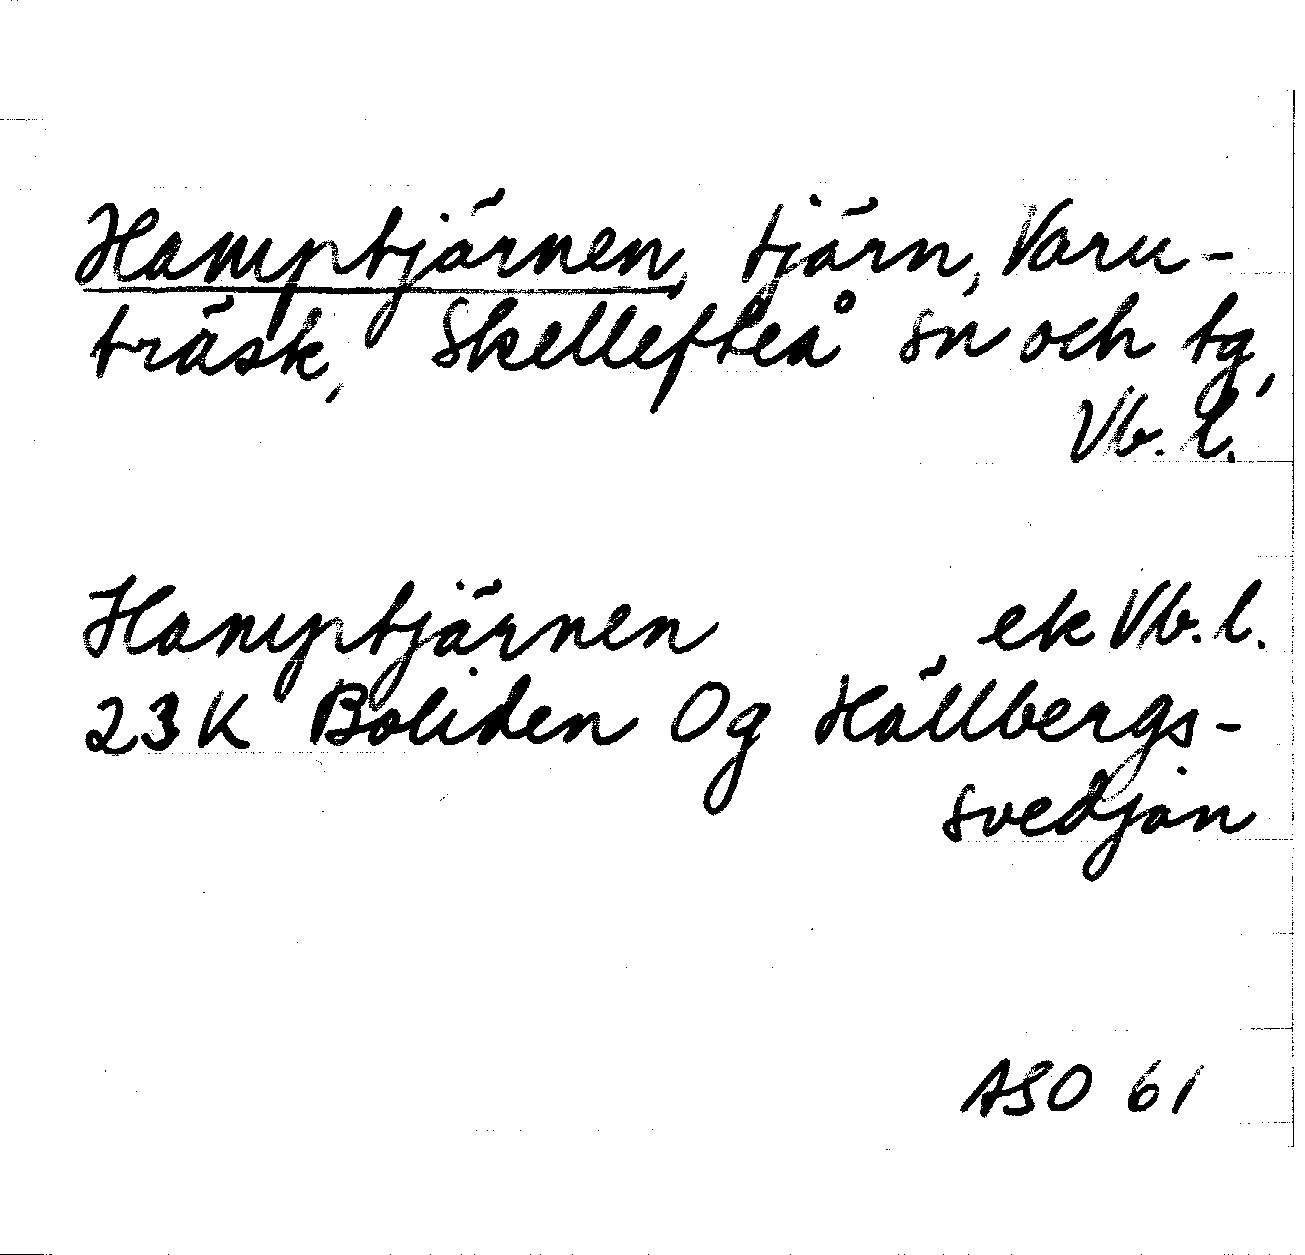 Hamptjärnen, tjärn, Varu-
träsk, Skellefteå sn och tg,
Vb. l.
Hamptjärnen ek Vb. l.
23K Boliden 0g Hällbergs-
svedjan
ASO 61